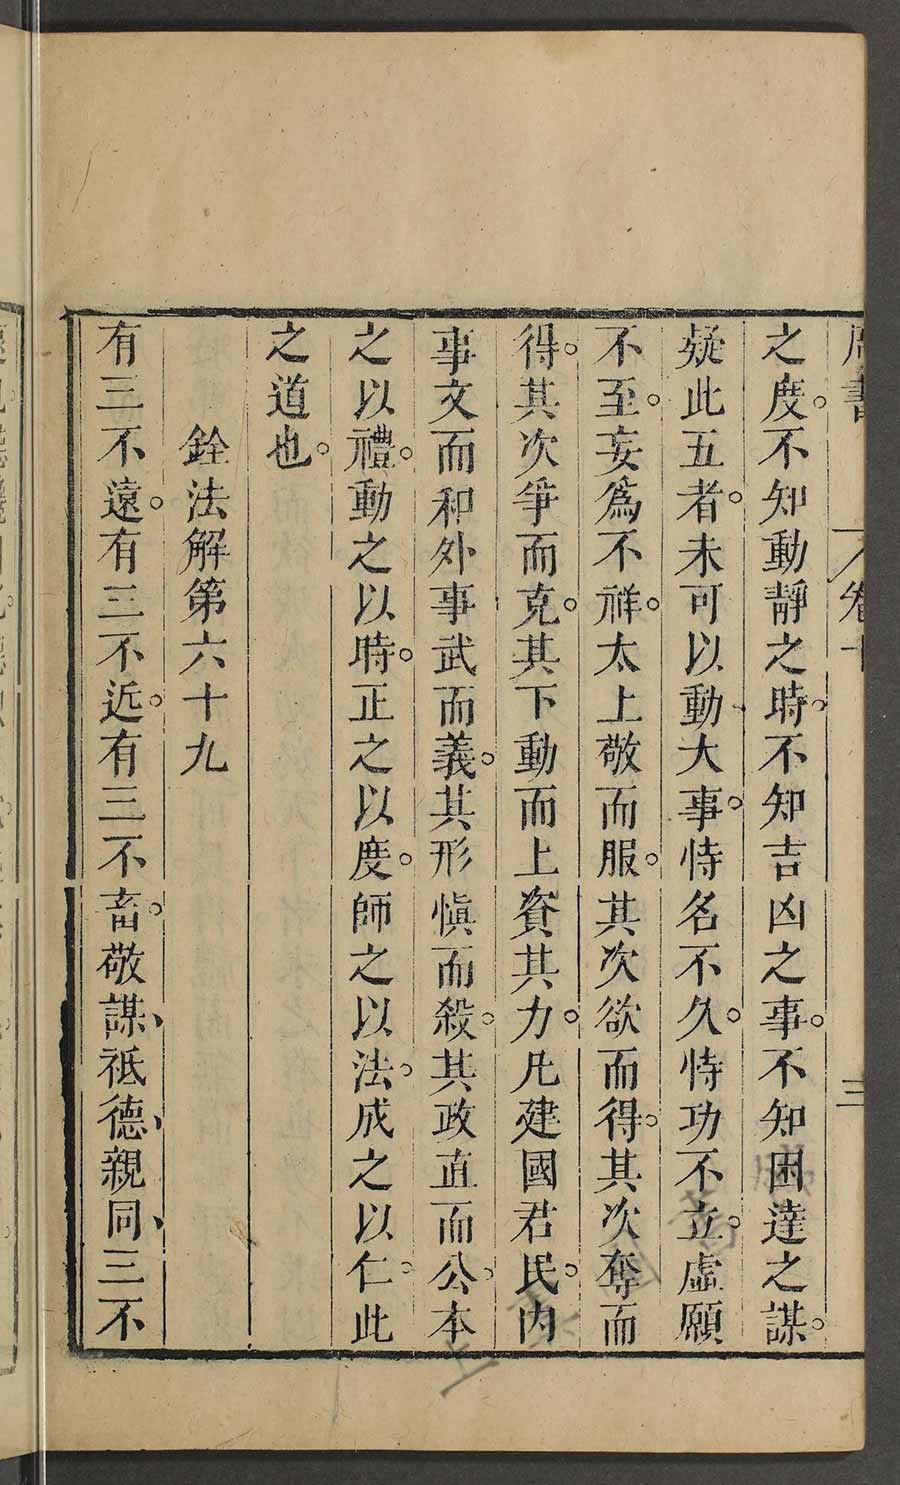 周書 卷十 三
之度。不知動靜之時。不知吉凶之事。不知困達之謀。
疑此五者。未可以動大事。恃名不久。恃功不立。虛願
不至。妄爲不祥。太上敬而服。其次欲而得。其次奪而
得。其次爭而克。其下動而上資其力。凡建國君民。内
事文而和外事武而義。其形愼而殺。其政直而公。本
之以禮。動之以時。正之以度。師之以法。成之以仁。此
之道也。
銓法解第六十九
有三不遠。有三不近。有三不畜。敬謀、祗德、親同、三不